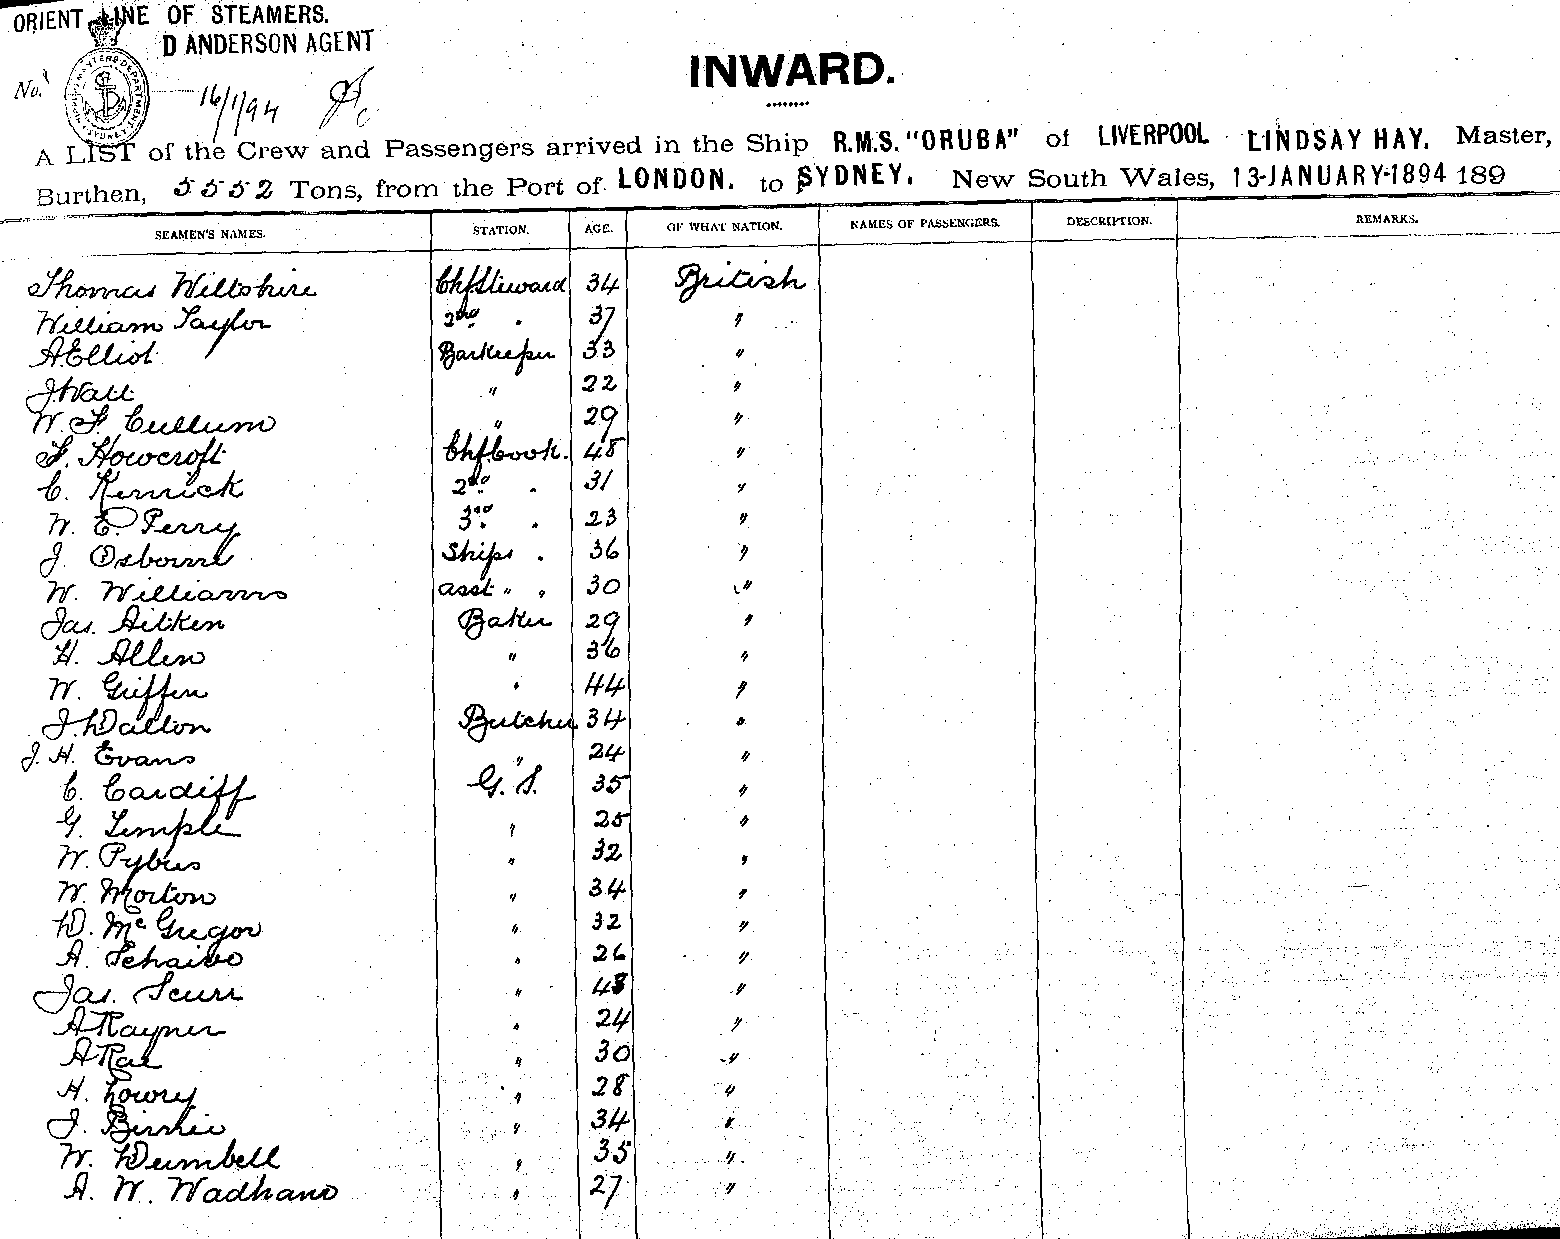 ORIENT LINE OF STEAMERS.
D ANDERSON AGENT
No.
16/1/94
INWARD.
A LIST of the Crew and Passengers arrived in the Ship R.M.S. "ORUBA" of LIVERPOOL LINDSAY HAY. Master,
Burthen, 5552 Tons, from the Port of LONDON. to SYDNEY. New South Wales, 13-JANUARY-1894 189
SEAMEN'S NAMES. STATION. AGE. OF WHAT NATION. NAMES OF PASSENGERS. DESCRIPTION. REMARKS.
Thomas Wiltshire Chf Steward 34 British
William Taylor 2nd " 37 "
A Elliot Barkeeper 33 "
J Watt " 22 "
W. F. Cullum " 29 "
F. Howcroft Chf Cook. 48 "
C. Kerrick 2nd " 31 "
W. E. Perry 3rd " 23 "
J. Osborne Ships " 36 "
W. Williams asst " " 30 "
Jas. Aitken Baker 29 "
H. Allen " 36 "
W. Griffin " 44 "
J. Dalton Butcher 34 "
J. H. Evans " 24 "
C. Cardiff G. S. 35 "
G. Temple " 25 "
W. Pybus " 32 "
W. Morton " 34 "
D. McGregor " 32 "
A. " 26 "
Jas. Scurr " 48 "
A Rayner " 24 "
A Rae " 30 "
H. Lowry " 28 "
J. Birnie " 34 "
W. Dumbell " 35 "
A. W. Wadhams " 27 "